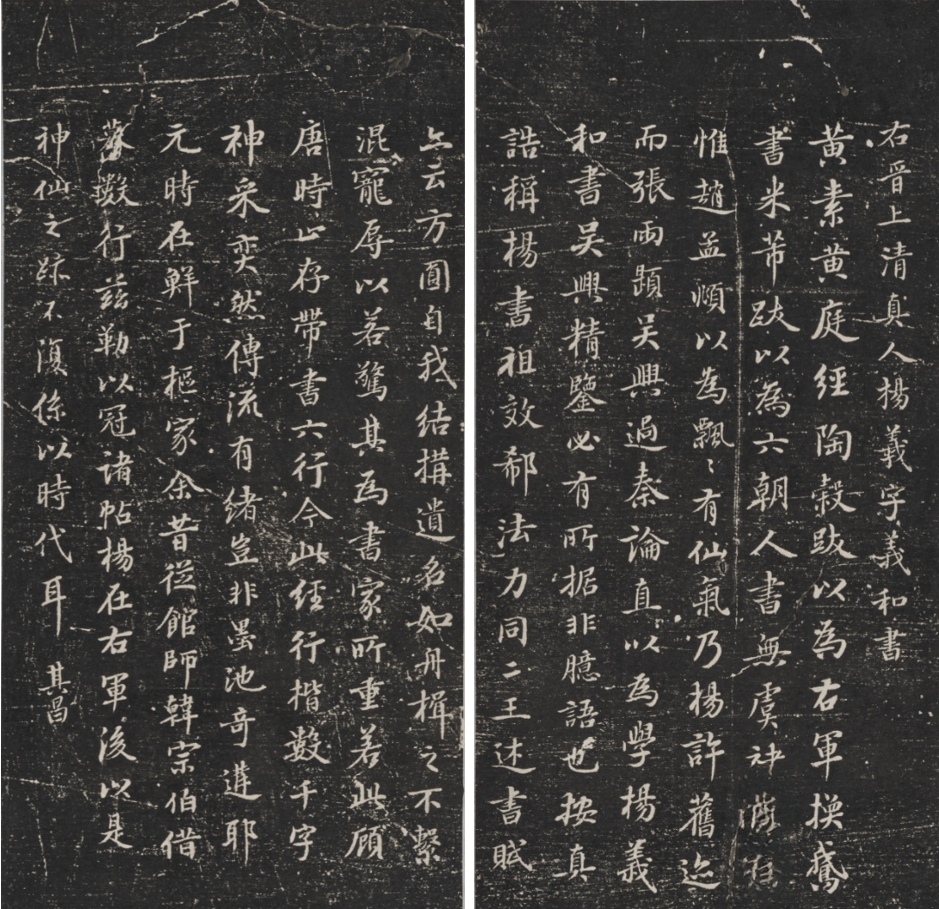 右晉上清真人楊羲字羲和書
黃素黃庭經陶穀跋以為右軍換鵞
書米芾跋以為六朝人書無虞褚
惟趙孟頫以為飄〻有仙氣乃楊許舊迹
而張雨題吳興過秦論直以為學楊羲
和書吳興精鑒必有所据非臆語也按真
誥稱楊書祖效郗法力同二王述書賦
亦云方圓自我結搆遺名如舟楫之不繫
混寵辱以若驚其為書家所重若此顧
唐時止存帶書六行今此經行楷數千字
神采奕然傳流有緒豈非墨池奇遘耶
元時在鮮于樞家余昔從館師韓宗伯借
摹數行茲勒以冠諸帖楊在右軍後以是
神仙之跡不復係以時代耳 其昌